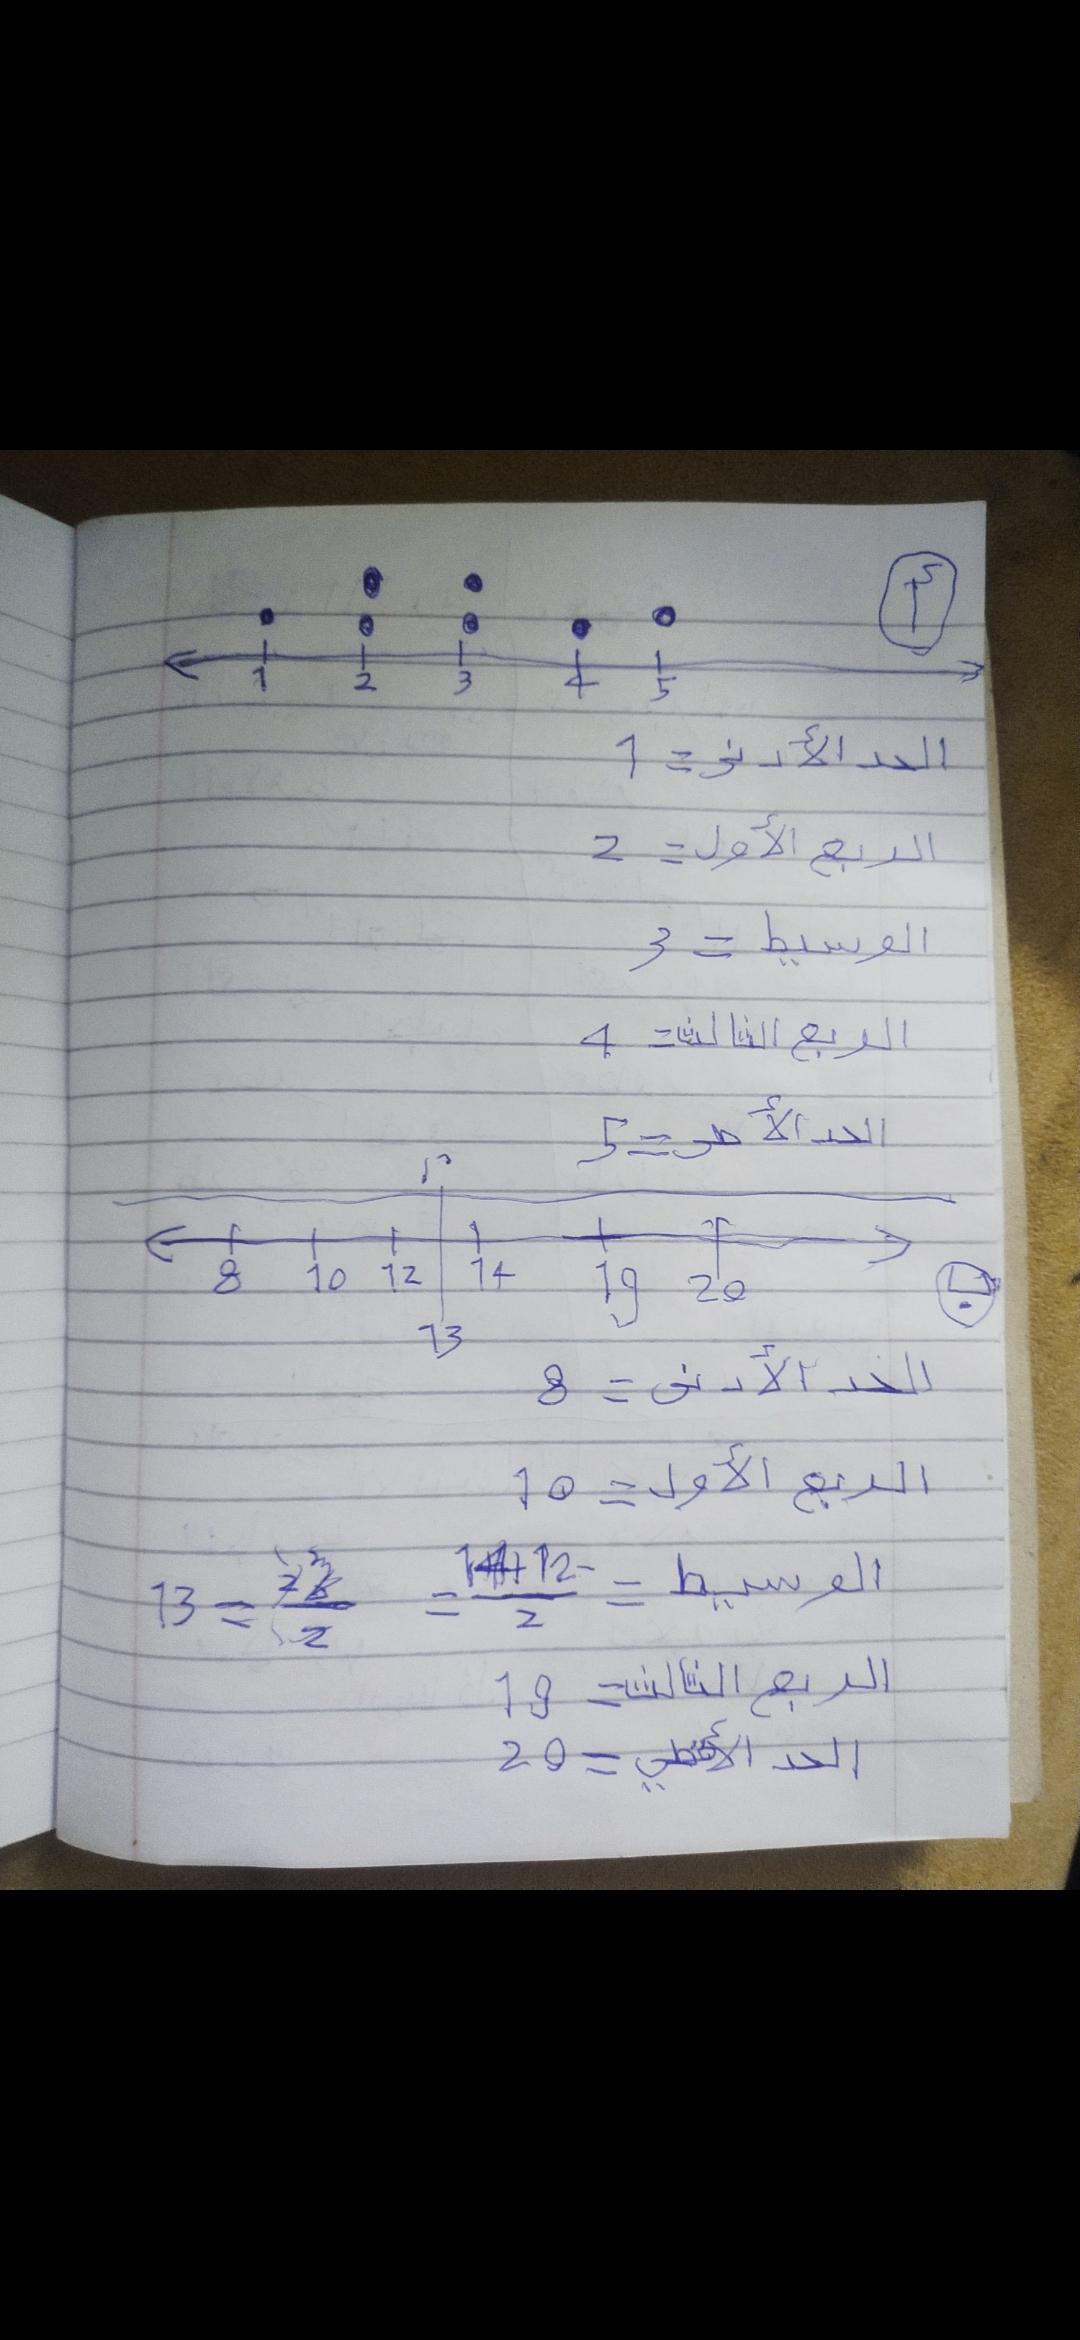 أ
1 2 3 4 5
الحد الأدنى = 1
الربع الأول = 2
الوسيط = 3
الربع الثالث = 4
الحد الأ = 5
8 10 12 14 19 20
ب
13
الحد الأدنى = 8
الربع الأول = 10
الوسيط = 14+12/2 = 2/2 = 13
الربع الثالث = 19
الحد الأقصى = 20